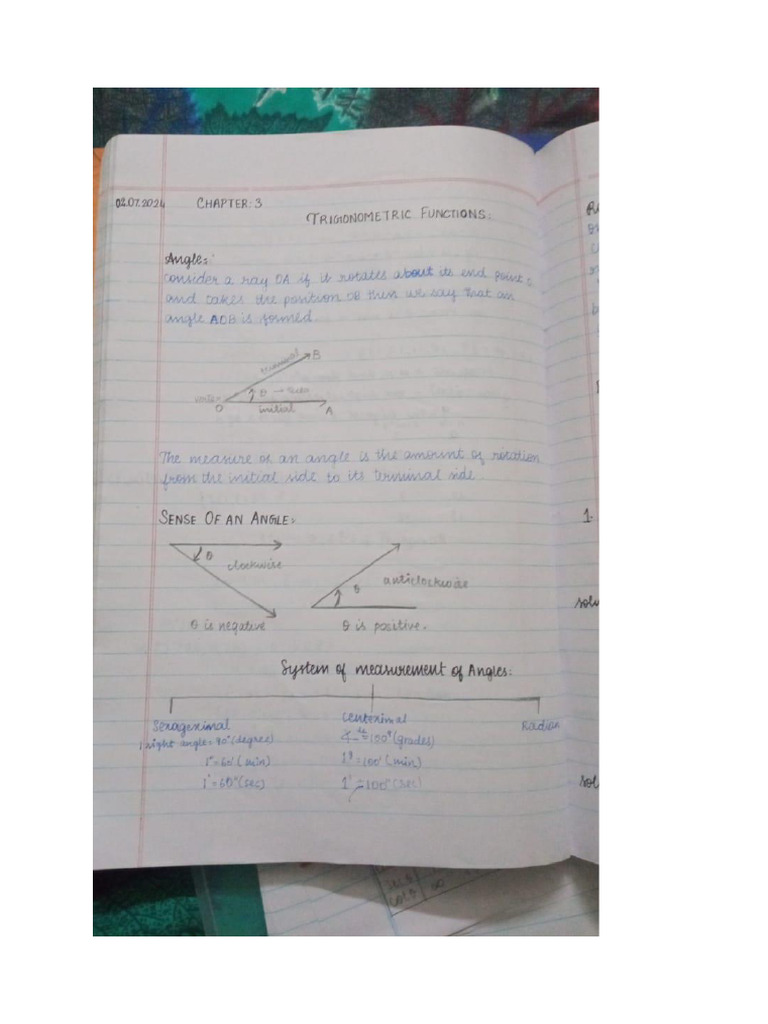 02.07.2024 CHAPTER: 3
TRIGONOMETRIC FUNCTIONS:
Angle:
Consider a ray OA if it rotates about its end point
and takes the position OB then we say that an
angle AOB is formed.
terminal B
θ → theta
vertex O initial A
The measure of an angle is the amount of rotation
from the initial side to its terminal side.
SENSE OF AN ANGLE:
θ clockwise
θ anticlockwise
θ is negative
θ is positive.
System of measurement of Angles:
Sexagesimal Centesimal Radian
1 right angle = 90° (degree) = 100ᵍ (grades)
1° = 60' (min) 1ᵍ = 100' (min)
1' = 60" (sec) 1' = 100" (sec)
1.
solu
sol
cot θ